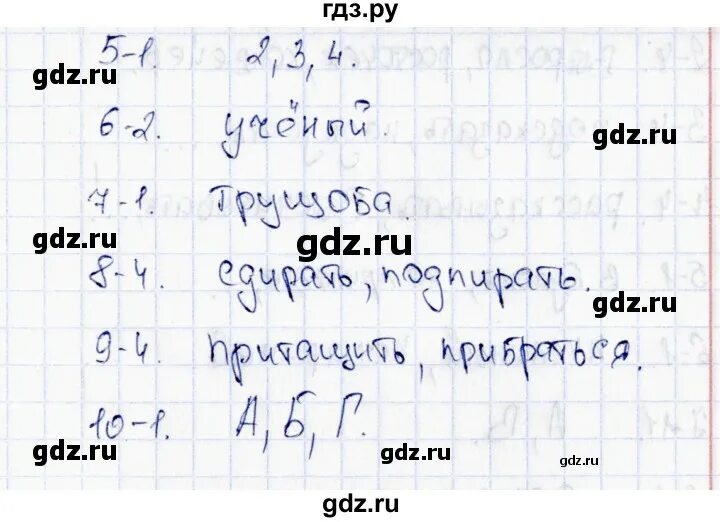 гдз.ру
5-1. 2, 3, 4.
gdz.ru gdz.ru
6-2. учёный.
gdz.ru
7-1. Трущоба.
gdz.ru gdz.ru
8-4. Сдирать, подпирать.
gdz.ru
9-4. Притащить, прибраться.
10-1. А, Б, Г.
gdz.ru gdz.ru gdz.ru
gdz.ru